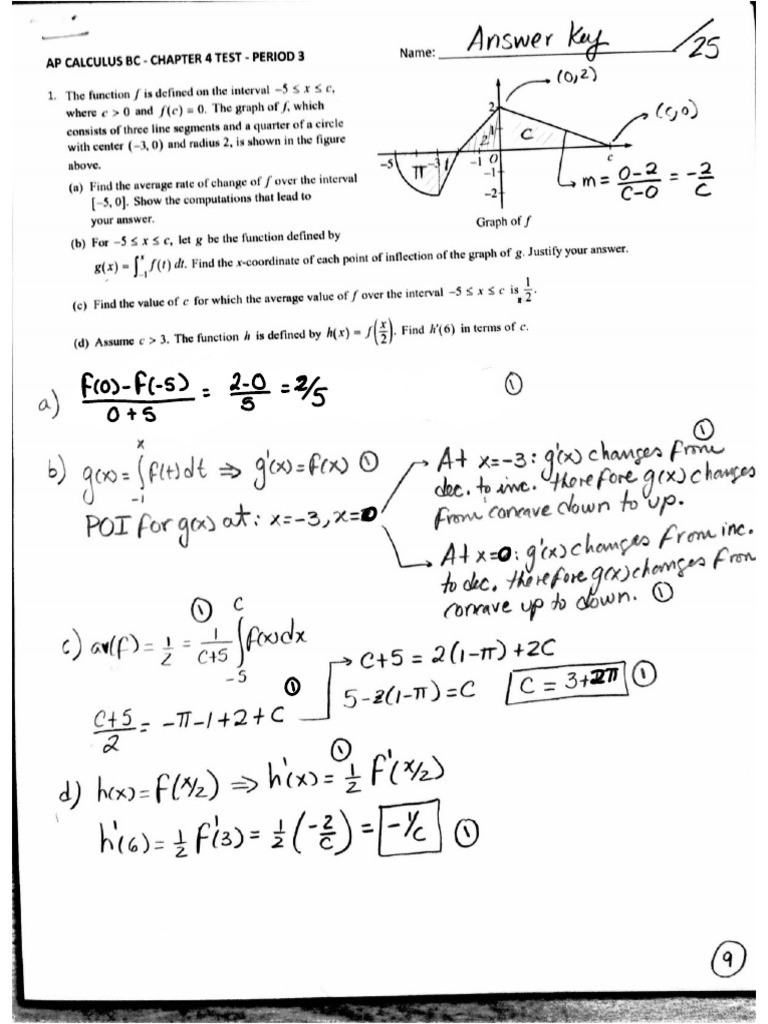 AP CALCULUS BC - CHAPTER 4 TEST - PERIOD 3
Name: Answer Key /25
1. The function f is defined on the interval −5 ≤ x ≤ c,
where c > 0 and f(c) = 0. The graph of f, which
consists of three line segments and a quarter of a circle
with center (−3, 0) and radius 2, is shown in the figure
above.
(a) Find the average rate of change of f over the interval
[−5, 0]. Show the computations that lead to
your answer.
(b) For −5 ≤ x ≤ c, let g be the function defined by
g(x) = ∫_{-1}^{x} f(t) dt. Find the x-coordinate of each point of inflection of the graph of g. Justify your answer.
(c) Find the value of c for which the average value of f over the interval −5 ≤ x ≤ c is 1/2.
(d) Assume c > 3. The function h is defined by h(x) = f(x/2). Find h'(6) in terms of c.
(0,2)
(c,0)
2
1
C
-5
-3
-1
O
c
π
1
-1
-2
m = (0-2)/(C-0) = -2/C
Graph of f
a) (f(0)-f(-5))/(0+5) = (2-0)/5 = 2/5 ①
b) g(x) = ∫_{-1}^{x} f(t)dt ⇒ g'(x) = f(x) ①
POI for g(x) at: x=-3, x=0
At x=-3: g'(x) changes from ①
dec. to inc. therefore g(x) changes
from concave down to up.
At x=0: g'(x) changes from inc.
to dec. therefore g(x) changes from
concave up to down. ①
c) av(f) = 1/2 = ① 1/(C+5) ∫_{-5}^{C} f(x)dx
(C+5)/2 = -π-1+2+C ①
C+5 = 2(1-π)+2C
5-2(1-π) = C
C = 3+2π ①
d) h(x) = f(x/2) ⇒ h'(x) = ① 1/2 f'(x/2)
h'(6) = 1/2 f'(3) = 1/2 (-2/C) = -1/C ①
9